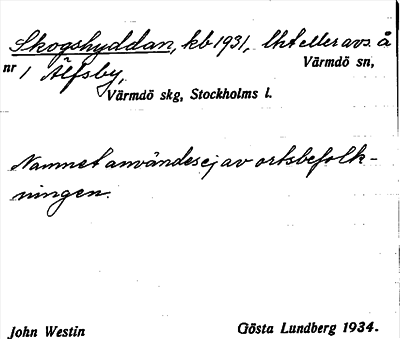 Skogshyddan, kb 1931, lht eller avs. å
nr 1 Älfsby,
Värmdö sn,
Värmdö skg, Stockholms l.
Namnet användes ej av ortsbefolk-
ningen.
John Westin
Gösta Lundberg 1934.